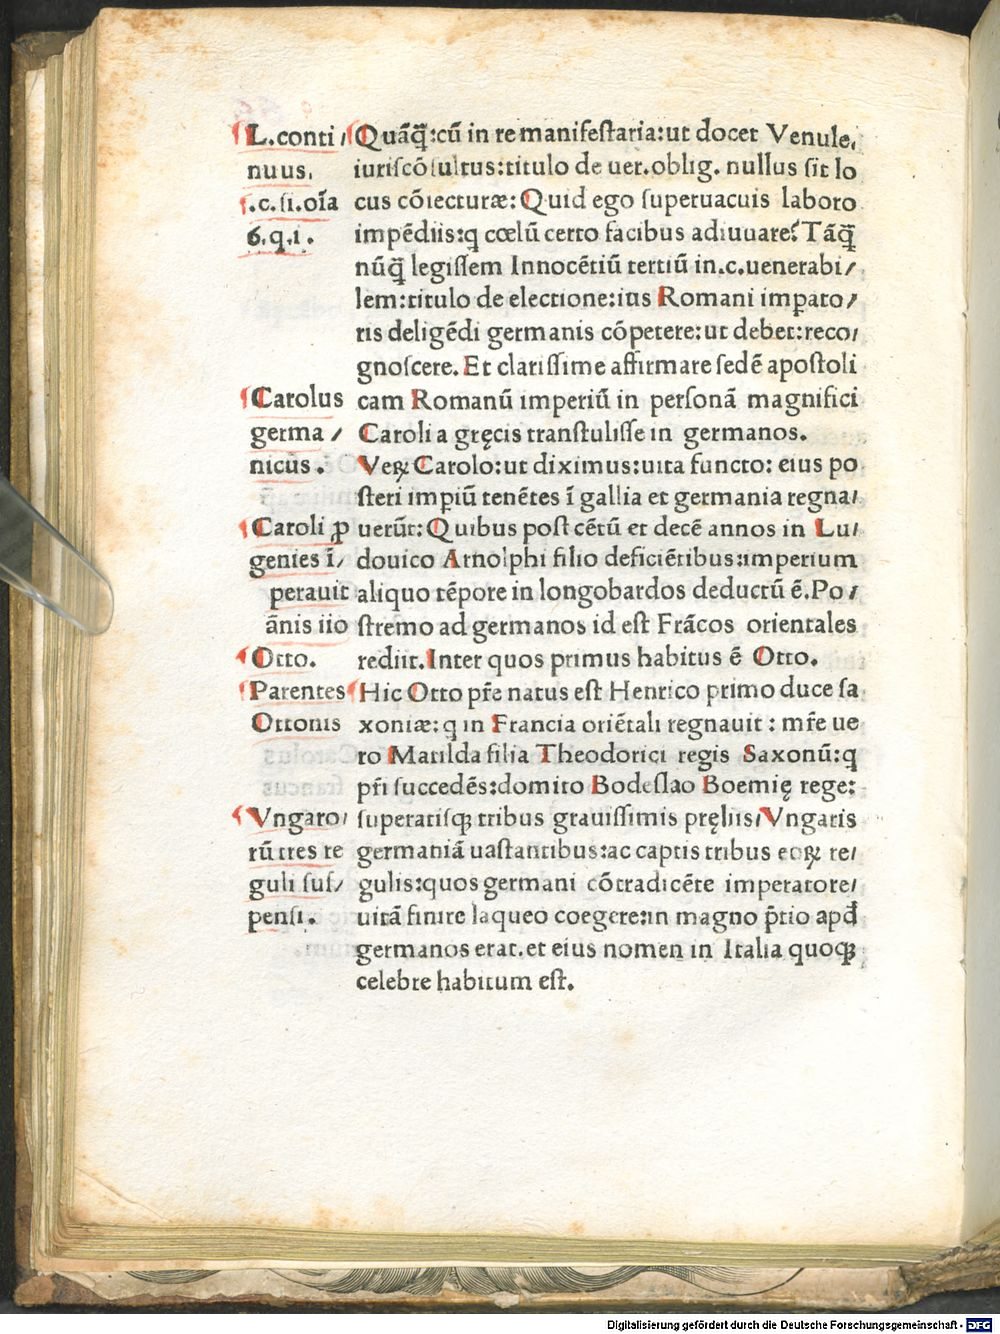 L.conti/
nuus.
.c.ſi.oı̄a
6.q.i.
Carolus
germa/
nicus.
Caroli ꝓ
genies ī/
perauit
ānis iio
Otto.
Parentes
Ottonis
Vngaro/
rū tres re
guli ſuſ/
penſi.
Quāq̄:cū in re manifeſtaria:ut docet Venule,
iuriſcōſultus:titulo de uer.oblig. nullus ſit lo
cus cōiecturæ:Quid ego ſuperuacuis laboro
impēdiis:q cœlū certo facibus adiuuare? Tāq̄
nūq̄ legiſſem Innocētiū tertiū in.c.uenerabi/
lem:titulo de electione:ius Romani imꝑato/
ris deligēdi germanis cōpetere:ut debet:reco/
gnoſcere. Et clariſſime affirmare ſedē apoſtoli
cam Romanū imperiū in perſonā magnifici
Caroli a gręcis tranſtuliſſe in germanos.
Veꝝ Carolo:ut diximus:uita functo: eius po
ſteri imꝑiū tenētes ī gallia et germania regna/
uerūt:Quibus poſt cētū et decē annos in Lu/
douico Arnolphi filio deficiētibus:imperium
aliquo tēpore in longobardos deductū ē.Po/
ſtremo ad germanos id eſt Frācos orientales
rediit.Inter quos primus habitus ē Otto.
Hic Otto pr̄e natus eſt Henrico primo duce ſa
xoniæ:q in Francia oriētali regnauit: mr̄e ue
ro Matilda filia Theodorici regis Saxonū:q
pr̄i ſuccedēs:domito Bodeſlao Boemię rege:
ſuperatiſqꝫ tribus grauiſſimis pręliis/Vngaris
germaniā uaſtantibus:ac captis tribus eoꝝ re/
gulis:quos germani cōtradicēte imperatore/
uitā finire laqueo coegere:in magno p̄tio apđ
germanos erat.et eius nomen in Italia quoqꝫ
celebre habitum eſt.
Digitalisierung gefördert durch die Deutsche Forschungsgemeinschaft - DFG